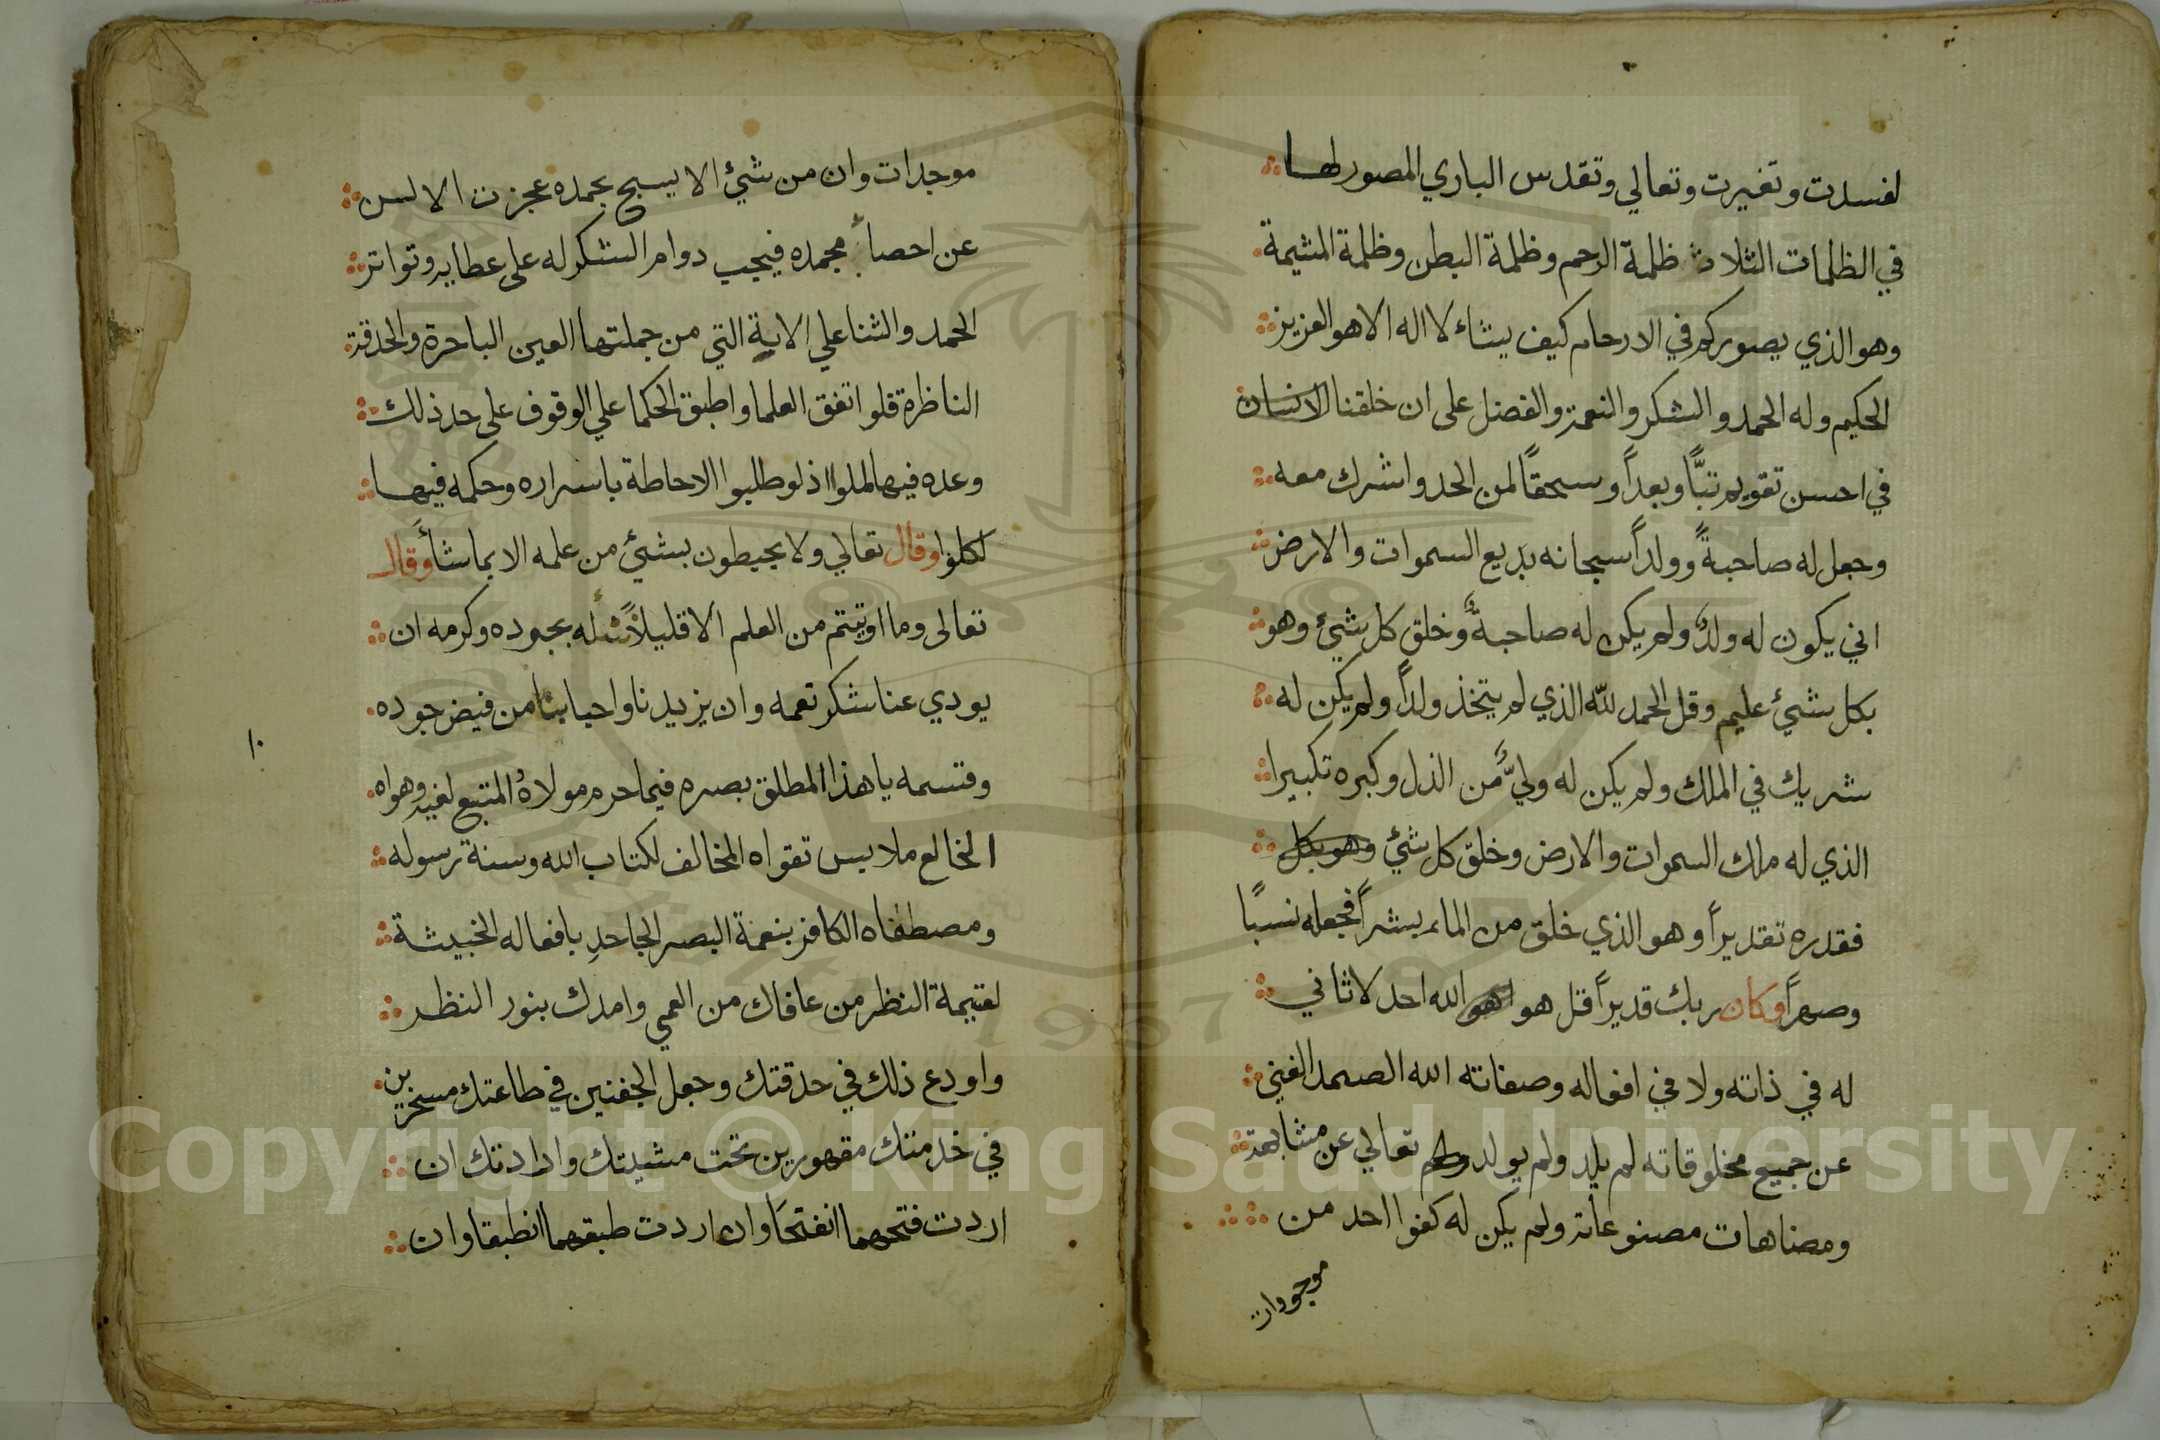 لفسدت وتغيرت وتعالي وتقدس الباري المصور لها
في الظلمات الثلاث ظلمة الرحم وظلمة البطن وظلمة المشيمة
وهو الذي يصوركم في الارحام كيف يشاء لا اله الا هو العزيز
الحكيم وله الحمد والشكر والنعمة والفضل على ان خلقنا الانسان
في احسن تقويم تبًّا وبعداً وسحقاً لمن الحد واشرك معه
وجعل له صاحبةً وولداً سبحانه بديع السموات والارض
اني يكون له ولدٌ ولم يكن له صاحبةٌ وخلق كل شيئ وهو
بكل شيئ عليم وقل الحمد لله الذي لم يتخذ ولداً ولم يكن له
شريك في الملك ولم يكن له وليٌّ من الذل وكبره تكبيرا
الذي له ملك السموات والارض وخلق كل شيئ وهو بكل
فقدره تقديراً وهو الذي خلق من الماء بشراً فجعله نسبًا
وصهراً وكان ربك قديراً قل هو الله احد لا ثاني
له في ذاته ولا في افعاله وصفاته الله الصمد الغني
عن جميع مخلوقاته لم يلد ولم يولد تعالي عن مشابهة
ومضاهات مصنوعاته ولم يكن له كفوا احد من
موجودات
موجدات وان من شيئ الا يسبح بحمده عجزت الالسن
عن احصاء محمده فيجب دوام الشكر له على عطايه وتواتر
الحمد والثنا علي الاية التي من جملتها العين الباحرة والحدقة
الناظرة فلو اتفق العلما واطبق الحكما علي الوقوف على حد ذلك
وعده فيها لملوا اذ لو طلبوا الاحاطة باسراره وحكمه فيها
لكلوا وقال تعالي ولا يحيطون بشيئ من علمه الا بما شاء وقال
تعالى وما اوتيتم من العلم الا قليلاً نسٔله بجوده وكرمه ان
يودي عنا شكر نعمه وان يزيدنا واحبابنا من فيض جوده
وقسمه يا هذا المطلق بصره فيما حرم مولاه المتبع لغيه وهواه
الخالع ملابس تقواه المخالف لكتاب الله وسنة رسوله
ومصطفاه الكافر بنعمة البصر الجاحدِ بافعاله الخبيثة
لقيمة النظر من عافاك من العمي وامدك بنور النظر
واودع ذلك في حدقتك وجعل الجفنين في طاعتك مسخرين
في خدمتك مقهورين تحت مشيتك وارادتك ان
اردت فتحهما انفتحا وان اردت طبقهما انطبقا وان
١٠
Copyright © King Saud University
1957